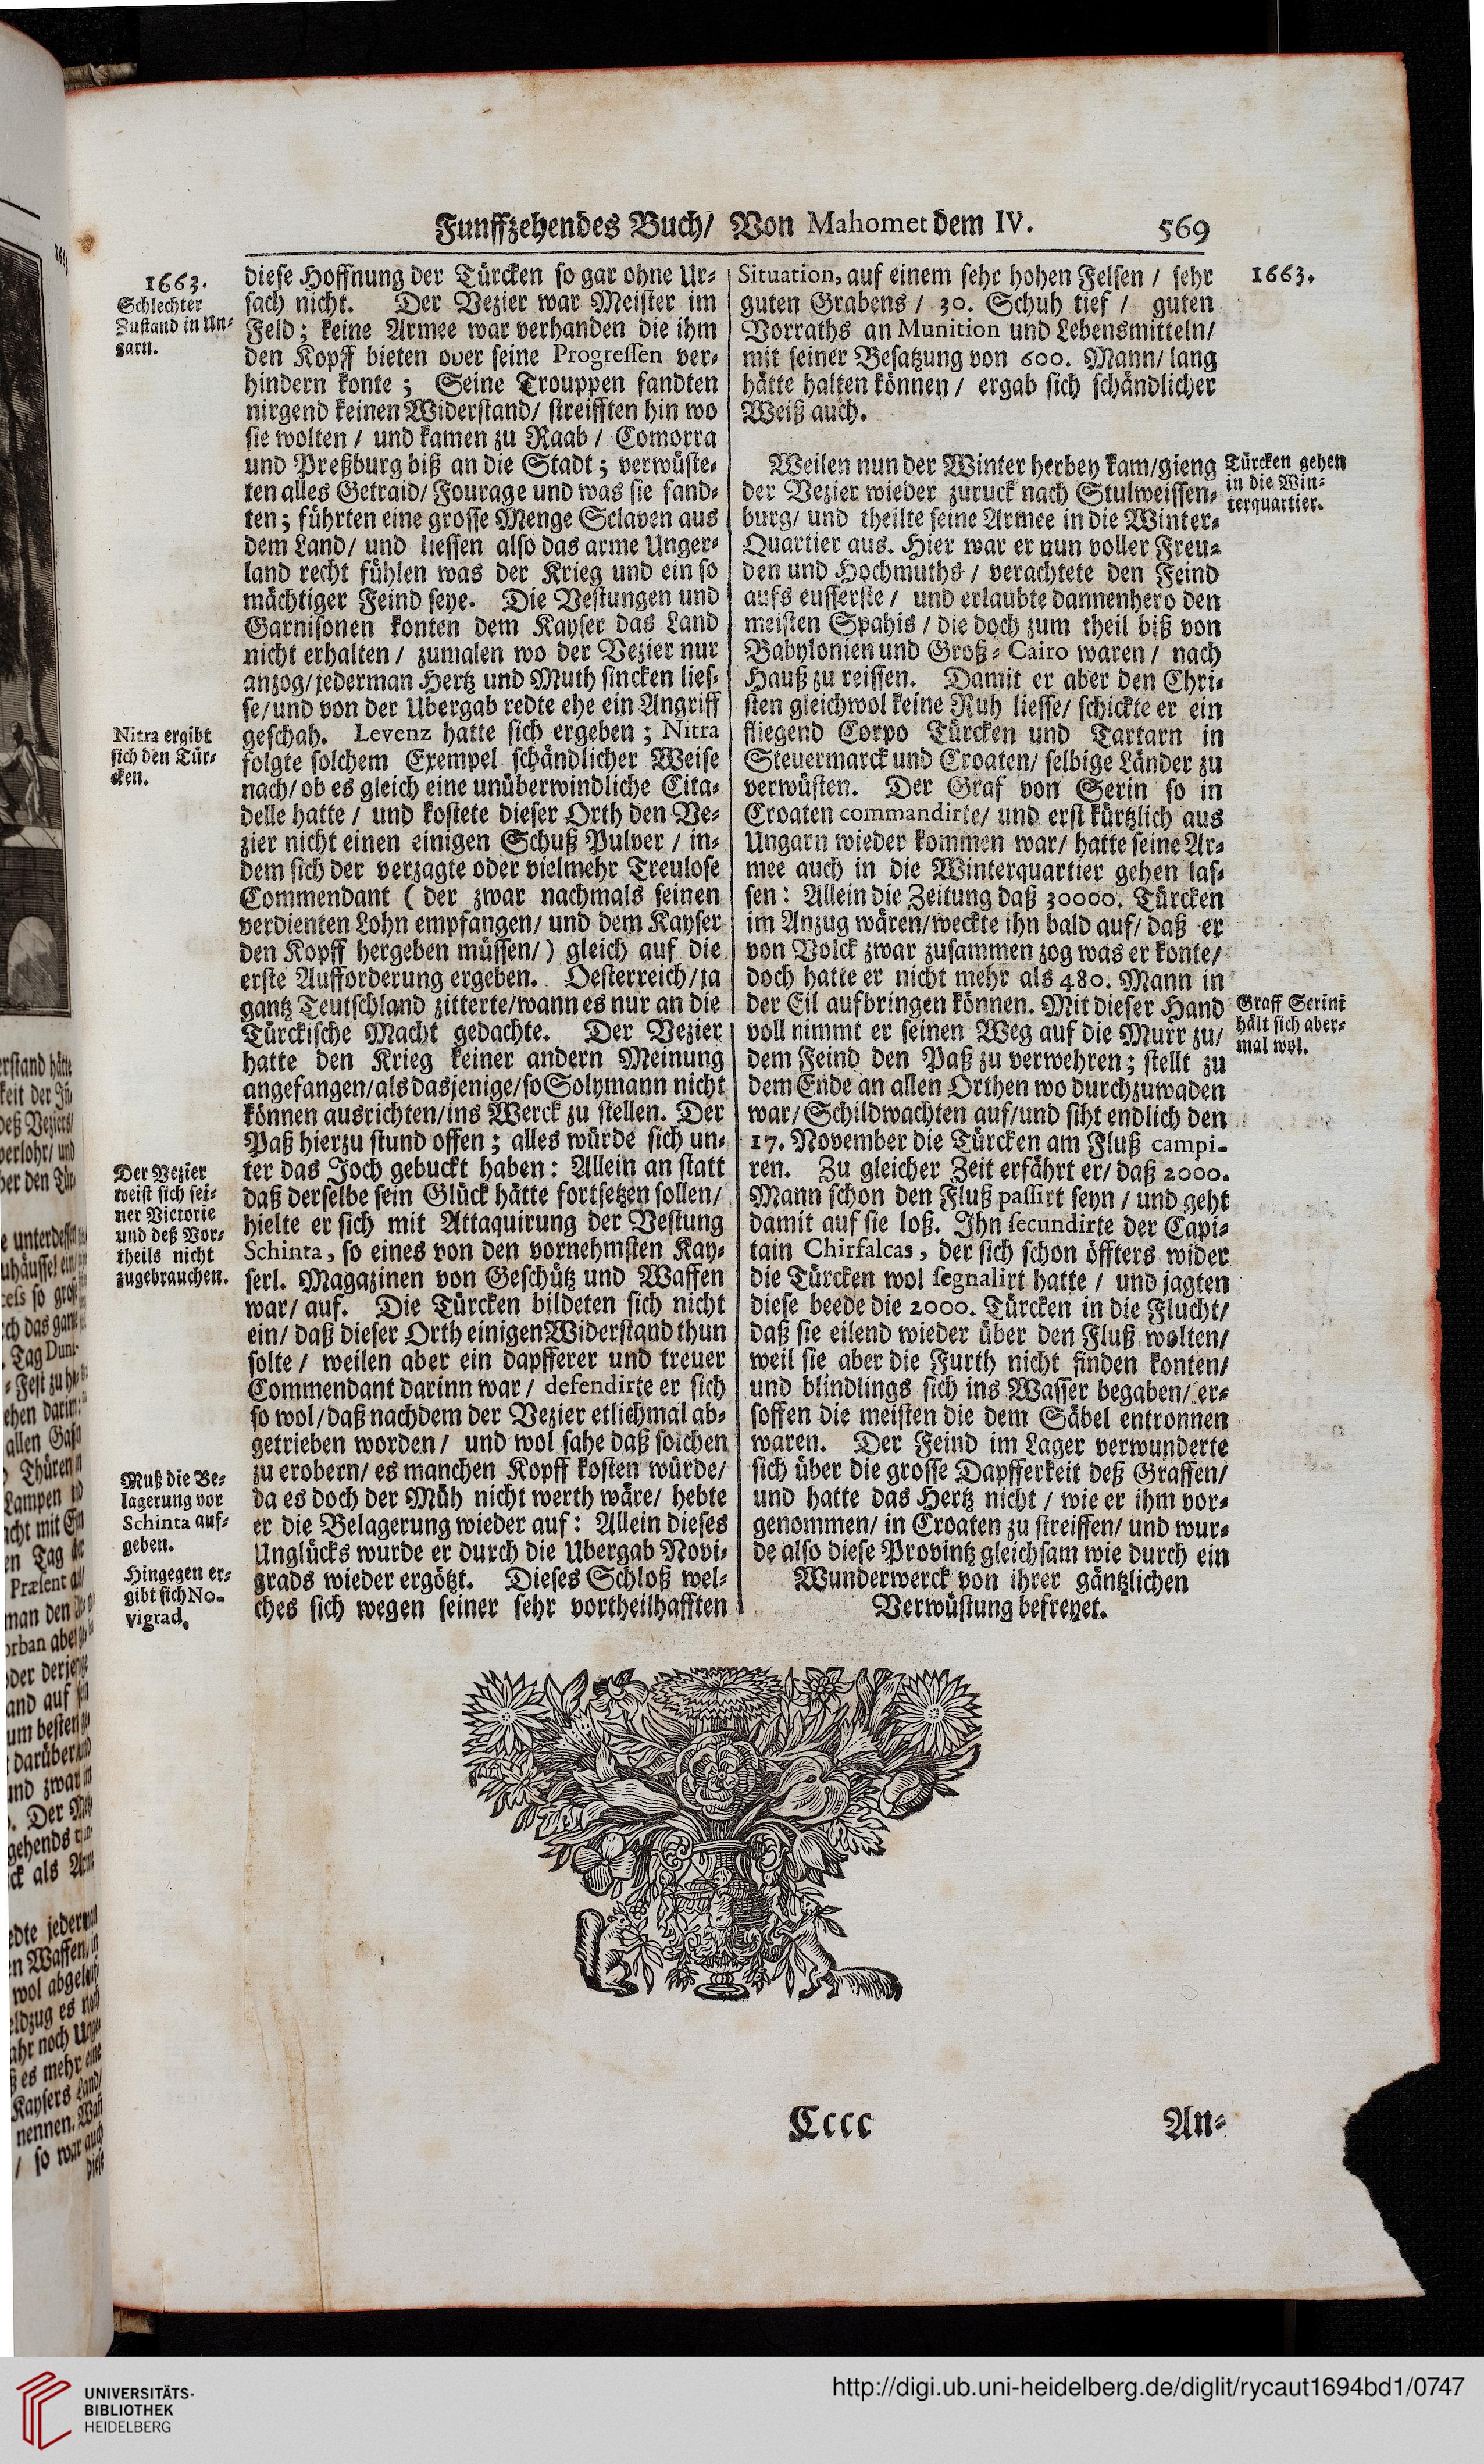 Funffzehendes Buch/ Von Mahomet dem IV. 569
1663.
Schlechter
Zustand in Un-
garn.
diese Hoffnung der Türcken so gar ohne Ur-
sach nicht. Der Vezier war Meister im
Feld; keine Armee war verhanden die ihm
den Kopff bieten oder seine Progressen ver-
hindern konte; Seine Trouppen fandten
nirgend keinen Widerstand/ streifften hin wo
sie wolten / und kamen zu Raab / Comorra
und Preßburg biß an die Stadt; verwüste-
ten alles Getraid/ Fourage und was sie fand-
ten; führten eine grosse Menge Sclaven aus
dem Land/ und liessen also das arme Unger-
land recht fühlen was der Krieg und ein so
mächtiger Feind seye. Die Vestungen und
Garnisonen konten dem Kayser das Land
nicht erhalten / zumalen wo der Vezier nur
anzog/ jederman Hertz und Muth sincken lies-
se/ und von der Ubergab redte ehe ein Angriff
Nitra ergibt
sich den Tür-
cken.
geschah. Levenz hatte sich ergeben; Nitra
folgte solchem Exempel schändlicher Weise
nach/ ob es gleich eine unüberwindliche Cita-
delle hatte / und kostete dieser Orth den Ve-
zier nicht einen einigen Schuß Pulver / in-
dem sich der verzagte oder vielmehr Treulose
Commendant ( der zwar nachmals seinen
verdienten Lohn empfangen/ und dem Kayser
den Kopff hergeben müssen/) gleich auf die
erste Aufforderung ergeben. Oesterreich/ ja
gantz Teutschland zitterte/ wann es nur an die
Türckische Macht gedachte. Der Vezier
hatte den Krieg keiner andern Meinung
angefangen/ als dasjenige/ so Solymann nicht
können ausrichten/ ins Werck zu stellen. Der
Paß hierzu stund offen; alles würde sich un-
Der Vezier
weist sich sei-
ner Victorie
und deß Vor-
theils nicht
zugebrauchen.
ter das Joch gebuckt haben: Allein an statt
daß derselbe sein Glück hätte fortsetzen sollen/
hielte er sich mit Attaquirung der Vestung
Schinta, so eines von den vornehmsten Kay-
serl. Magazinen von Geschütz und Waffen
war/ auf. Die Türcken bildeten sich nicht
ein/ daß dieser Orth einigen Widerstand thun
solte / weilen aber ein dapfferer und treuer
Commendant darinn war / defendirte er sich
so wol/ daß nachdem der Vezier etlichmal ab-
getrieben worden / und wol sahe daß solchen
Muß die Be-
lagerung vor
Schinta auf-
geben.
zu erobern/ es manchen Kopff kosten würde/
da es doch der Müh nicht werth wäre/ hebte
er die Belagerung wieder auf: Allein dieses
Unglücks wurde er durch die Ubergab Novi-
Hingegen er-
gibt sich No-
vigrad.
grads wieder ergötzt. Dieses Schloß wel-
ches sich wegen seiner sehr vortheilhafften
1663.
Situation, auf einem sehr hohen Felsen / sehr
guten Grabens / 30. Schuh tief / guten
Vorraths an Munition und Lebensmitteln/
mit seiner Besatzung von 600. Mann/ lang
hätte halten können / ergab sich schändlicher
Weiß auch.
Türcken gehen
in die Win-
terquartier.
Weilen nun der Winter herbey kam/ gieng
der Vezier wieder zuruck nach Stulweissen-
burg/ und theilte seine Armee in die Winter-
Quartier aus. Hier war er nun voller Freu-
den und Hochmuths / verachtete den Feind
aufs eusserste / und erlaubte dannenhero den
meisten Spahis / die doch zum theil biß von
Babylonien und Groß-Cairo waren / nach
Hauß zu reissen. Damit er aber den Chri-
sten gleichwol keine Ruh liesse/ schickte er ein
fliegend Corpo Türcken und Tartarn in
Steuermarck und Croaten/ selbige Länder zu
verwüsten. Der Graf von Serin so in
Croaten commandirte/ und erst kürtzlich aus
Ungarn wieder kommen war/ hatte seine Ar-
mee auch in die Winterquartier gehen las-
sen: Allein die Zeitung daß 30000. Türcken
im Anzug wären/ weckte ihn bald auf/ daß er
von Volck zwar zusammen zog was er konte/
doch hatte er nicht mehr als 480. Mann in
Graff Serini
hält sich aber-
mal wol.
der Eil aufbringen können. Mit dieser Hand
voll nimmt er seinen Weg auf die Murr zu/
dem Feind den Paß zu verwehren; stellt zu
dem Ende an allen Orthen wo durchzuwaden
war/ Schildwachten auf/ und siht endlich den
17. November die Türcken am Fluß campi-
ren. Zu gleicher Zeit erfährt er/ daß 2000.
Mann schon den Fluß passirt seyn / und geht
damit auf sie loß. Ihn secundirte der Capi-
tain Chirfalcas, der sich schon öffters wider
die Türcken wol segnalirt hatte / und jagten
diese beede die 2000. Türcken in die Flucht/
daß sie eilend wieder über den Fluß wolten/
weil sie aber die Furth nicht finden konten/
und blindlings sich ins Wasser begaben/ er-
soffen die meisten die dem Säbel entronnen
waren. Der Feind im Lager verwunderte
sich über die grosse Dapfferkeit deß Graffen/
und hatte das Hertz nicht / wie er ihm vor-
genommen/ in Croaten zu streiffen/ und wur-
de also diese Provintz gleichsam wie durch ein
Wunderwerck von ihrer gäntzlichen
Verwüstung befreyet.
Cccc
An-
UNIVERSITÄTS-
BIBLIOTHEK
HEIDELBERG
http://digi.ub.uni-heidelberg.de/diglit/rycaut1694bd1/0747